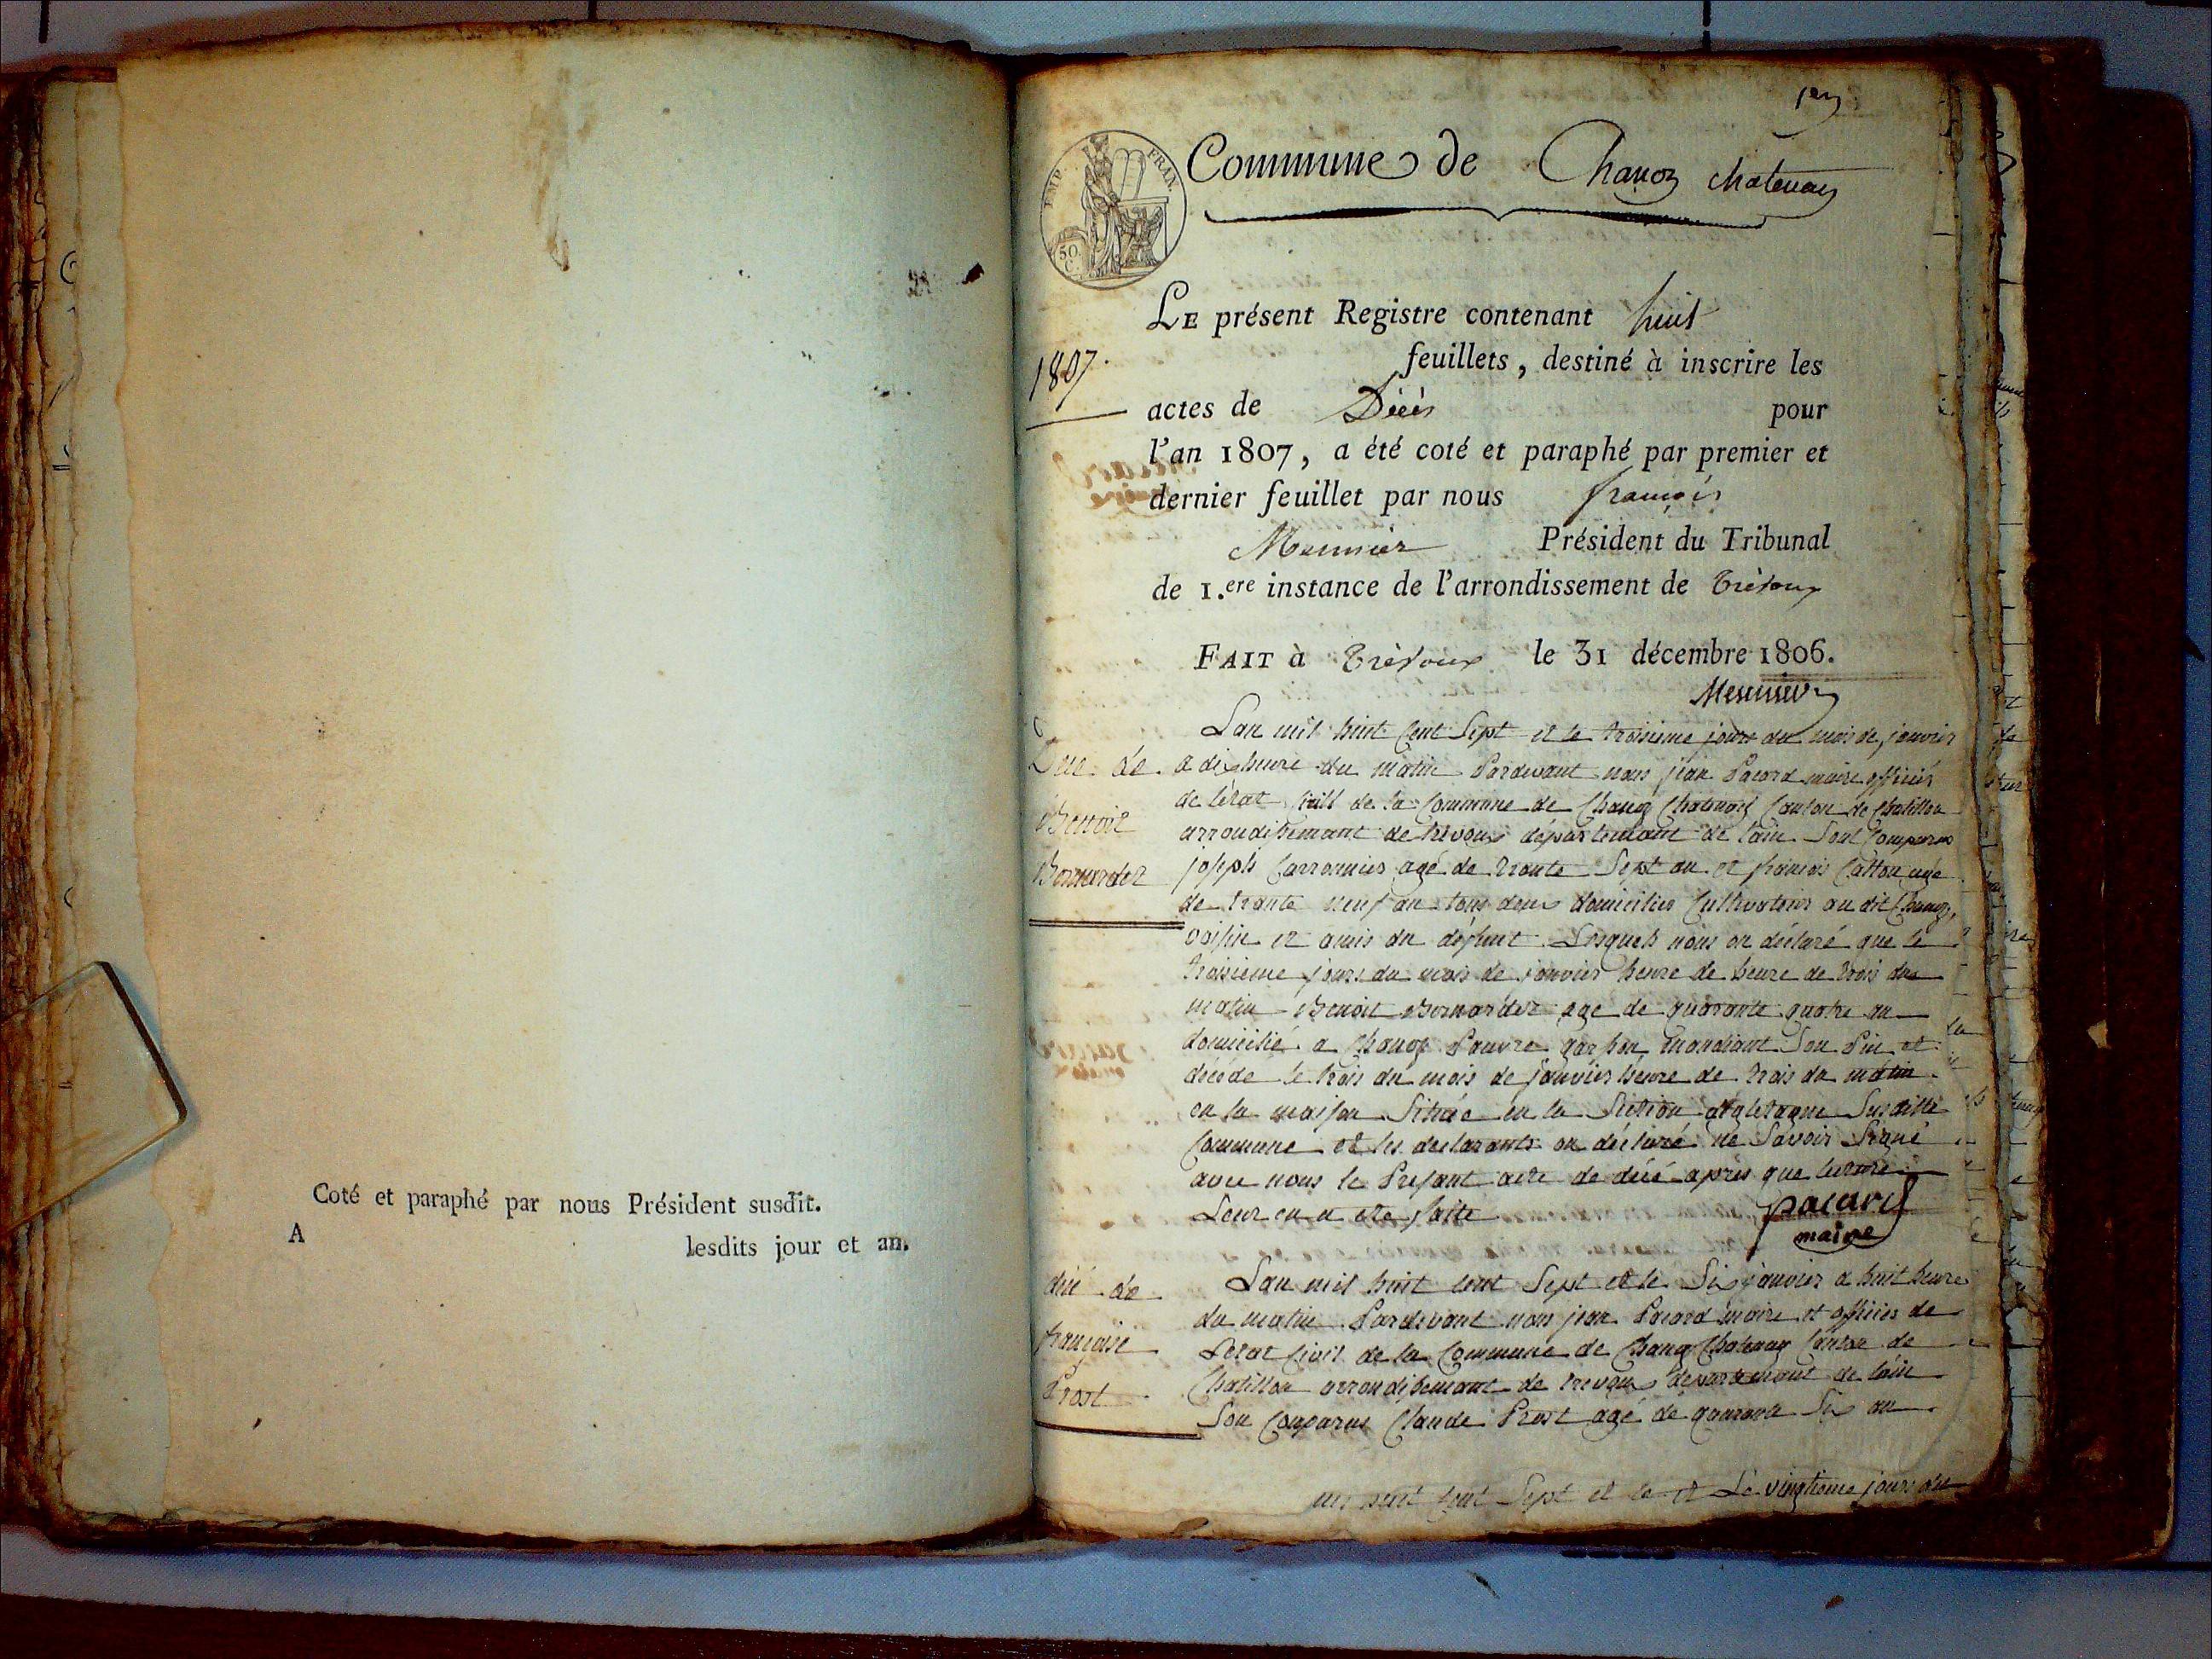 Coté et paraphé par nous Président susdit.
A lesdits jour et an.
1er
EMP. FRAN.
50 C
Commune de Chanoz chatenay
LE présent Registre contenant huit
feuillets, destiné à inscrire les
1807.
actes de Décès pour
l'an 1807, a été coté et paraphé par premier et
dernier feuillet par nous françois
Meunier Président du Tribunal
de 1.ere instance de l'arrondissement de Trévoux
FAIT à Trévoux le 31 décembre 1806.
Meunier
Décé de
Benoit
Bornarder
Lan mil huit Cent Sept et le troisieme jours du mois de janvier
a dix heure du matin Pardevant nous jean Pacard maire officier
de letat Civil de la Commune de Chanoz Chatenay Canton de Chatillon
arrondissemant de trevoux departemant de lain Sont Comparus
joseph Carronnier agé de trante Sept an et francois Catton agé
de trante neuf an tous deux domicilies Cultivateurs au dit Chanoz,
voisin et amis du defunt Lesquels nous on déclaré que le
troisieme jours du mois de janvier heure de heure de trois du
matin Benoit Bornarder age de quarante quatre an
domicilié a Chanoz Pauvre garson mandiant Son Pin et
décéde le trois du mois de janvier heure de trois du matin
en la maison Située en la Section Susditte
Commune et les declarants on déclaré ne Savoir Signé
avec nous le Presant acte de décé apres que lecture
Leur en a ete faite
pacard
maire
décé de
françoise
Prost
Lan mil huit cent Sept et le Six janvier a huit heure
du matin Pardevant nous jean Pacard maire et officier de
Letat Civil de la Commune de Chanoz Chatenay Canton de
Chatillon arrondissemant de trevoux departemant de lain
Son Comparus Claude Prost agé de quarante Six an
huit Cent Sept et le et Le vingtieme jours du